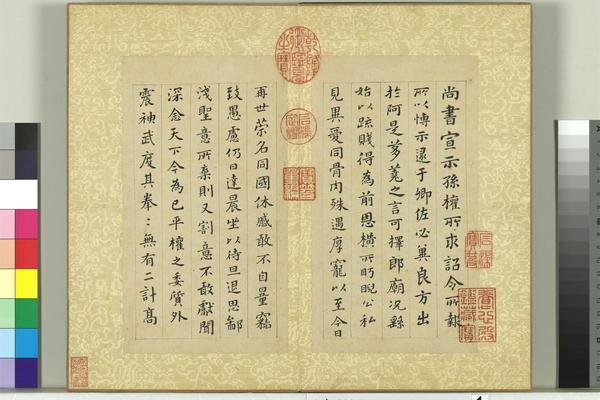 尚書宣示孫權所求詔令所報
所以博示逮于卿佐必冀良方出
於阿是芻蕘之言可擇郎廟況繇
始以疏賤得為前恩橫所眄睨公私
見異愛同骨肉殊遇厚寵以至今日
再世榮名同國休慼敢不自量竊
致愚慮仍日達晨坐以待旦退思鄙
淺聖意所棄則又割意不敢獻聞
深念天下今為已平權之委質外
震神武度其拳〻無有二計高
養心殿鑑藏寶